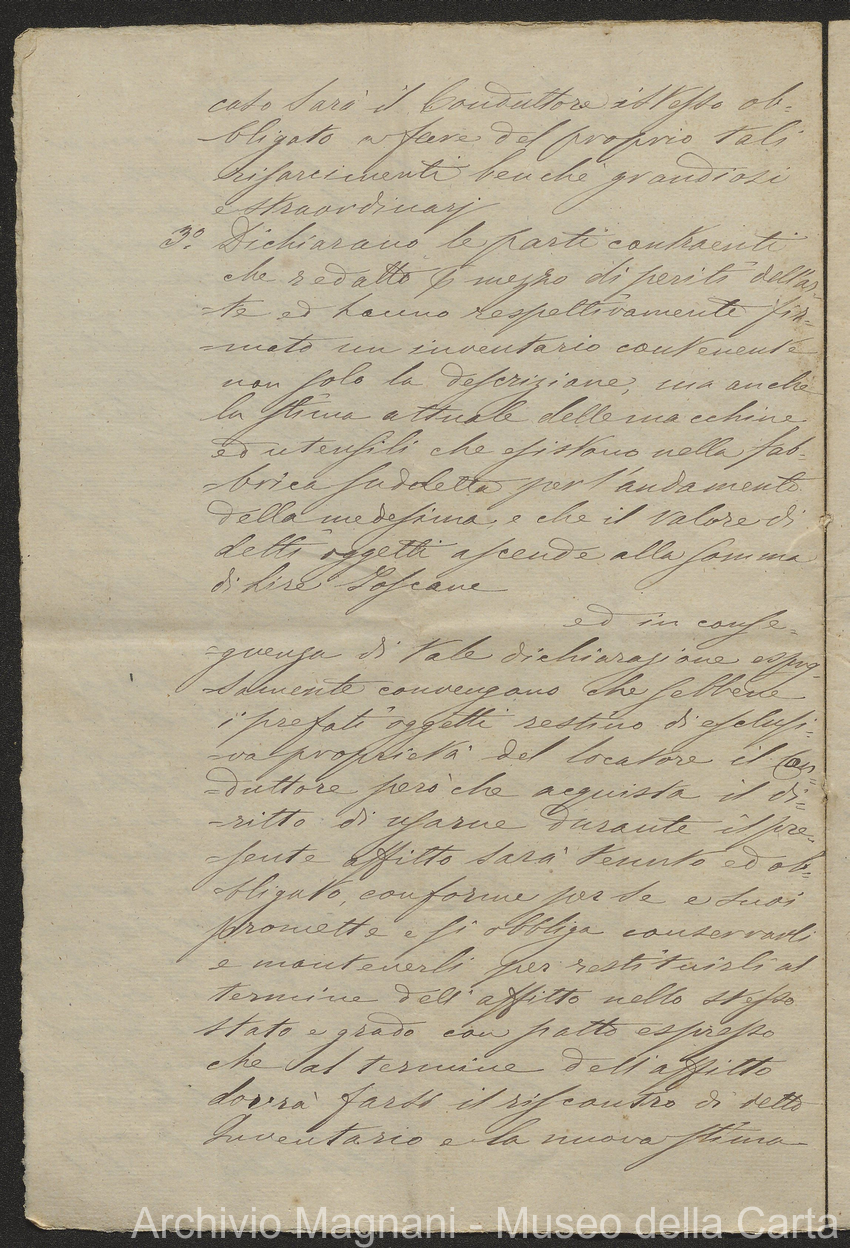 caso sarà il Conduttore istesso ob=
=bligato a fare del proprio tali
risarcimenti benchè grandiosi
e straordinarj
3.º Dichiarano le parti contraenti
che redatto p mezzo di periti dell'ar=
=te ed hanno respettivamente fir=
=mato un inventario contenente
non solo la descrizione, ma anche
la stima attuale delle macchine
ed utensili che esistono nella fab=
=brica suddetta per l'andamento
della medesima, e che il valore di
detti oggetti ascende alla somma
di Lire Toscane
ed in conse=
=guenza di tale dichiarazione espres=
=samente convengano che sebbene
i prefati oggetti restino di esclusi=
=va proprietà del locatore il Con=
=duttore però che acquista il di=
=ritto di usarne durante il pre=
=sente affitto sarà tenuto ed ob=
=bligato, conforme per se e suoi
promette e si obbliga conservarli
e mantenerli per restituirli al
termine dell'affitto nello stesso
stato e grado con patto espresso
che al termine dell'affitto
dovrà farsi il riscontro di detto
Inventario e la nuova stima
Archivio Magnani - Museo della Carta